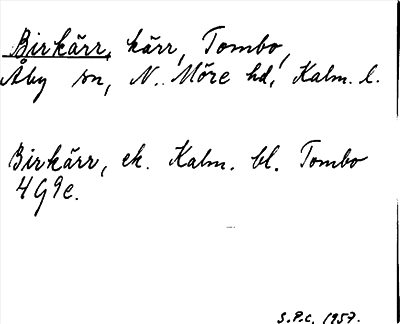 Birkärr, kärr, Tombo,
Åby sn, N. Möre hd, Kalm. l.
Birkärr, ek. Kalm. bl. Tombo
4G9e.
S.P.C. 1957.